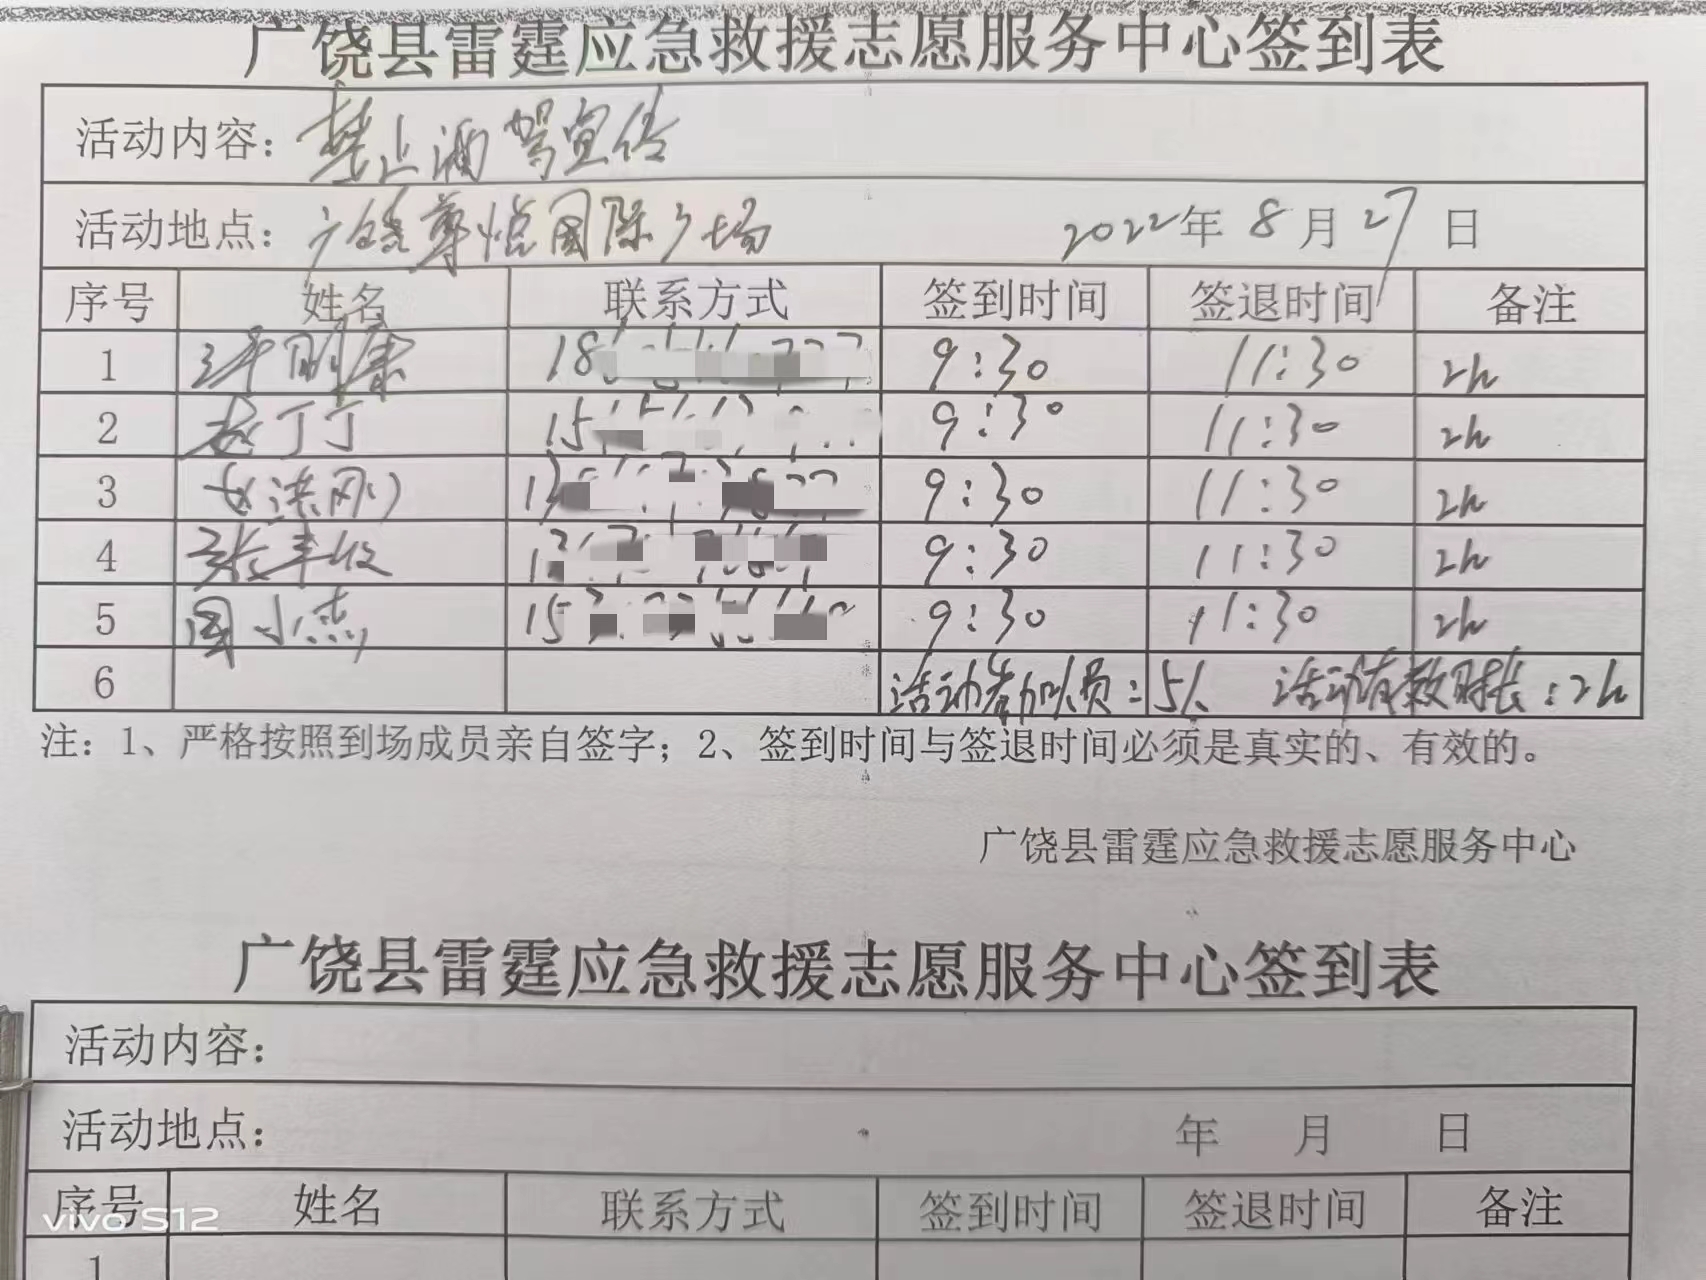 广饶县雷霆应急救援志愿服务中心签到表
活动内容：禁止酒驾宣传
活动地点：广饶尊悦国际广场 2022年 8月 27日
序号 姓名 联系方式 签到时间 签退时间 备注
1 18 9:30 11:30 2h
2 丁丁 15 9:30 11:30 2h
3 洪刚 13 9:30 11:30 2h
4 张丰收 9:30 11:30 2h
5 小杰 15 9:30 11:30 2h
6 活动参加队员：5人 活动有效时长：2h
注：1、严格按照到场成员亲自签字；2、签到时间与签退时间必须是真实的、有效的。
广饶县雷霆应急救援志愿服务中心
广饶县雷霆应急救援志愿服务中心签到表
活动内容：
活动地点： 年 月 日
序号 姓名 联系方式 签到时间 签退时间 备注
vivo S12
1